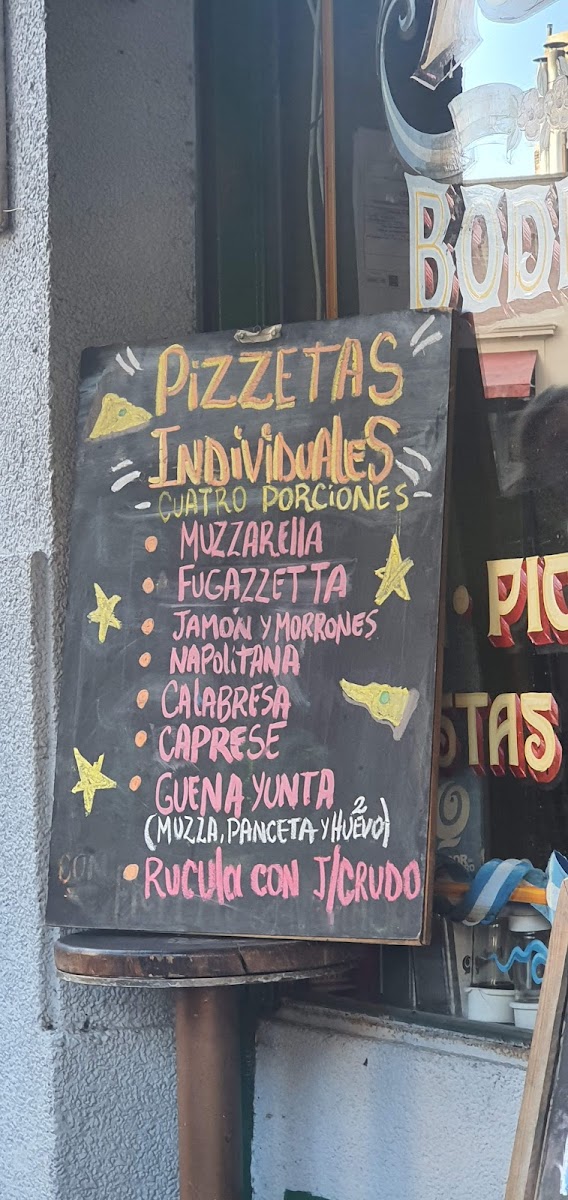 PIZZETAS
INDIVIDUALES
CUATRO PORCIONES
MUZZARELLA
FUGAZZETTA
JAMÓN Y MORRONES
NAPOLITANA
CALABRESA
CAPRESE
GUENA YUNTA
(MUZZA, PANCETA Y HUEVO)
RUCULA CON J/CRUDO
CON
BOD
PIC
STAS